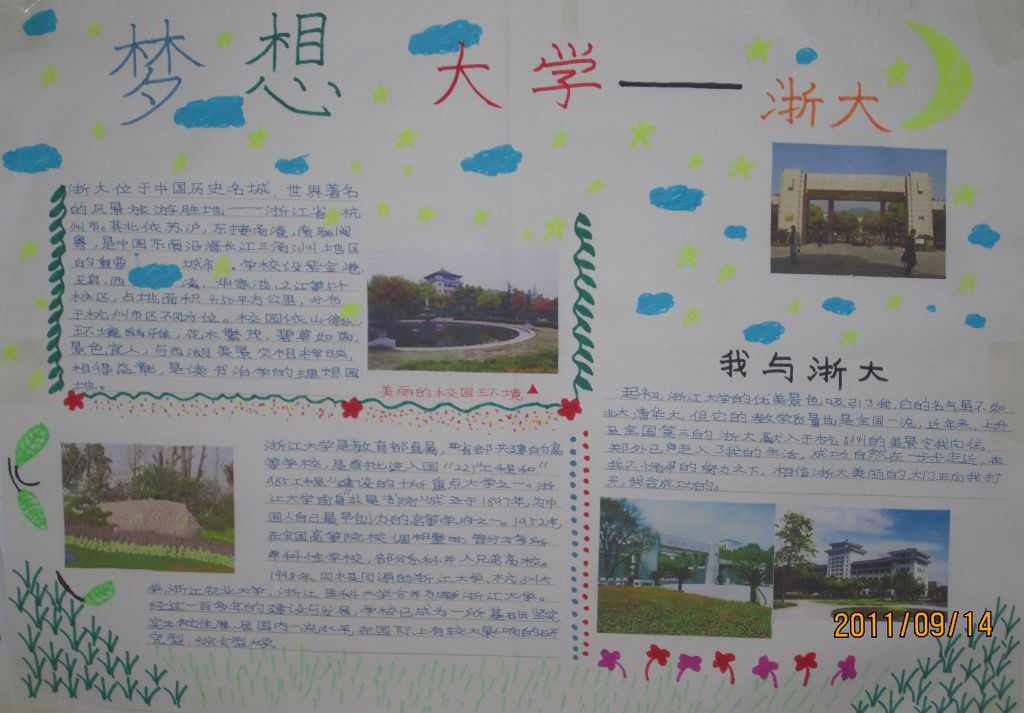 梦想大学——浙大
浙大位于中国历史名城，世界著名
的风景旅游胜地——浙江省杭
州市。其北依苏沪，东接南港，南联闽
粤，是中国东南沿海长江三角洲地区
的重要城市。学校设紫金港、
玉泉、西溪、华家池、之江等5个
校区，占地面积450平方公里，分布
于杭州市区不同方位。校园依山傍水，
环境幽雅，花木繁茂，碧草如茵，
景色宜人，与西湖美景交相辉映，
相得益彰，是读书治学的理想园
地。
美丽的校园环境
浙江大学是教育部直属，省部共建的高
等学校，是首批进入国"221工程和"
985工程"建设的十所重点大学之一。浙
江大学前身"求是书院"成立于1897年，为中
国人自己最早创办的高等学府之一。1952年，
在全国高等院校调整时，曾分为多所
单科性学校，部分系科并入兄弟高校。
1998年，同根同源的浙江大学、杭州大
学、浙江农业大学、浙江医科大学合并为新浙江大学。
经过一百多年的建设与发展，学校已成为一所基石出坚实、
实力雄厚，是国内一流水平，在国际上有较大影响的研
究型、综合型大学。
我与浙大
起初，浙江大学的优美景色吸引了我，它的名气虽不如
北大清华大，但它的教学质量也是全国一流，近年来，上升
至全国第三的浙大融入于杭州的美景令我向往。
郑外已走入了我的生活，成功自然在一步步走近，在
我不懈的努力之下，相信浙大美丽的大门正向我打
开，我会成功的。
2011/09/14